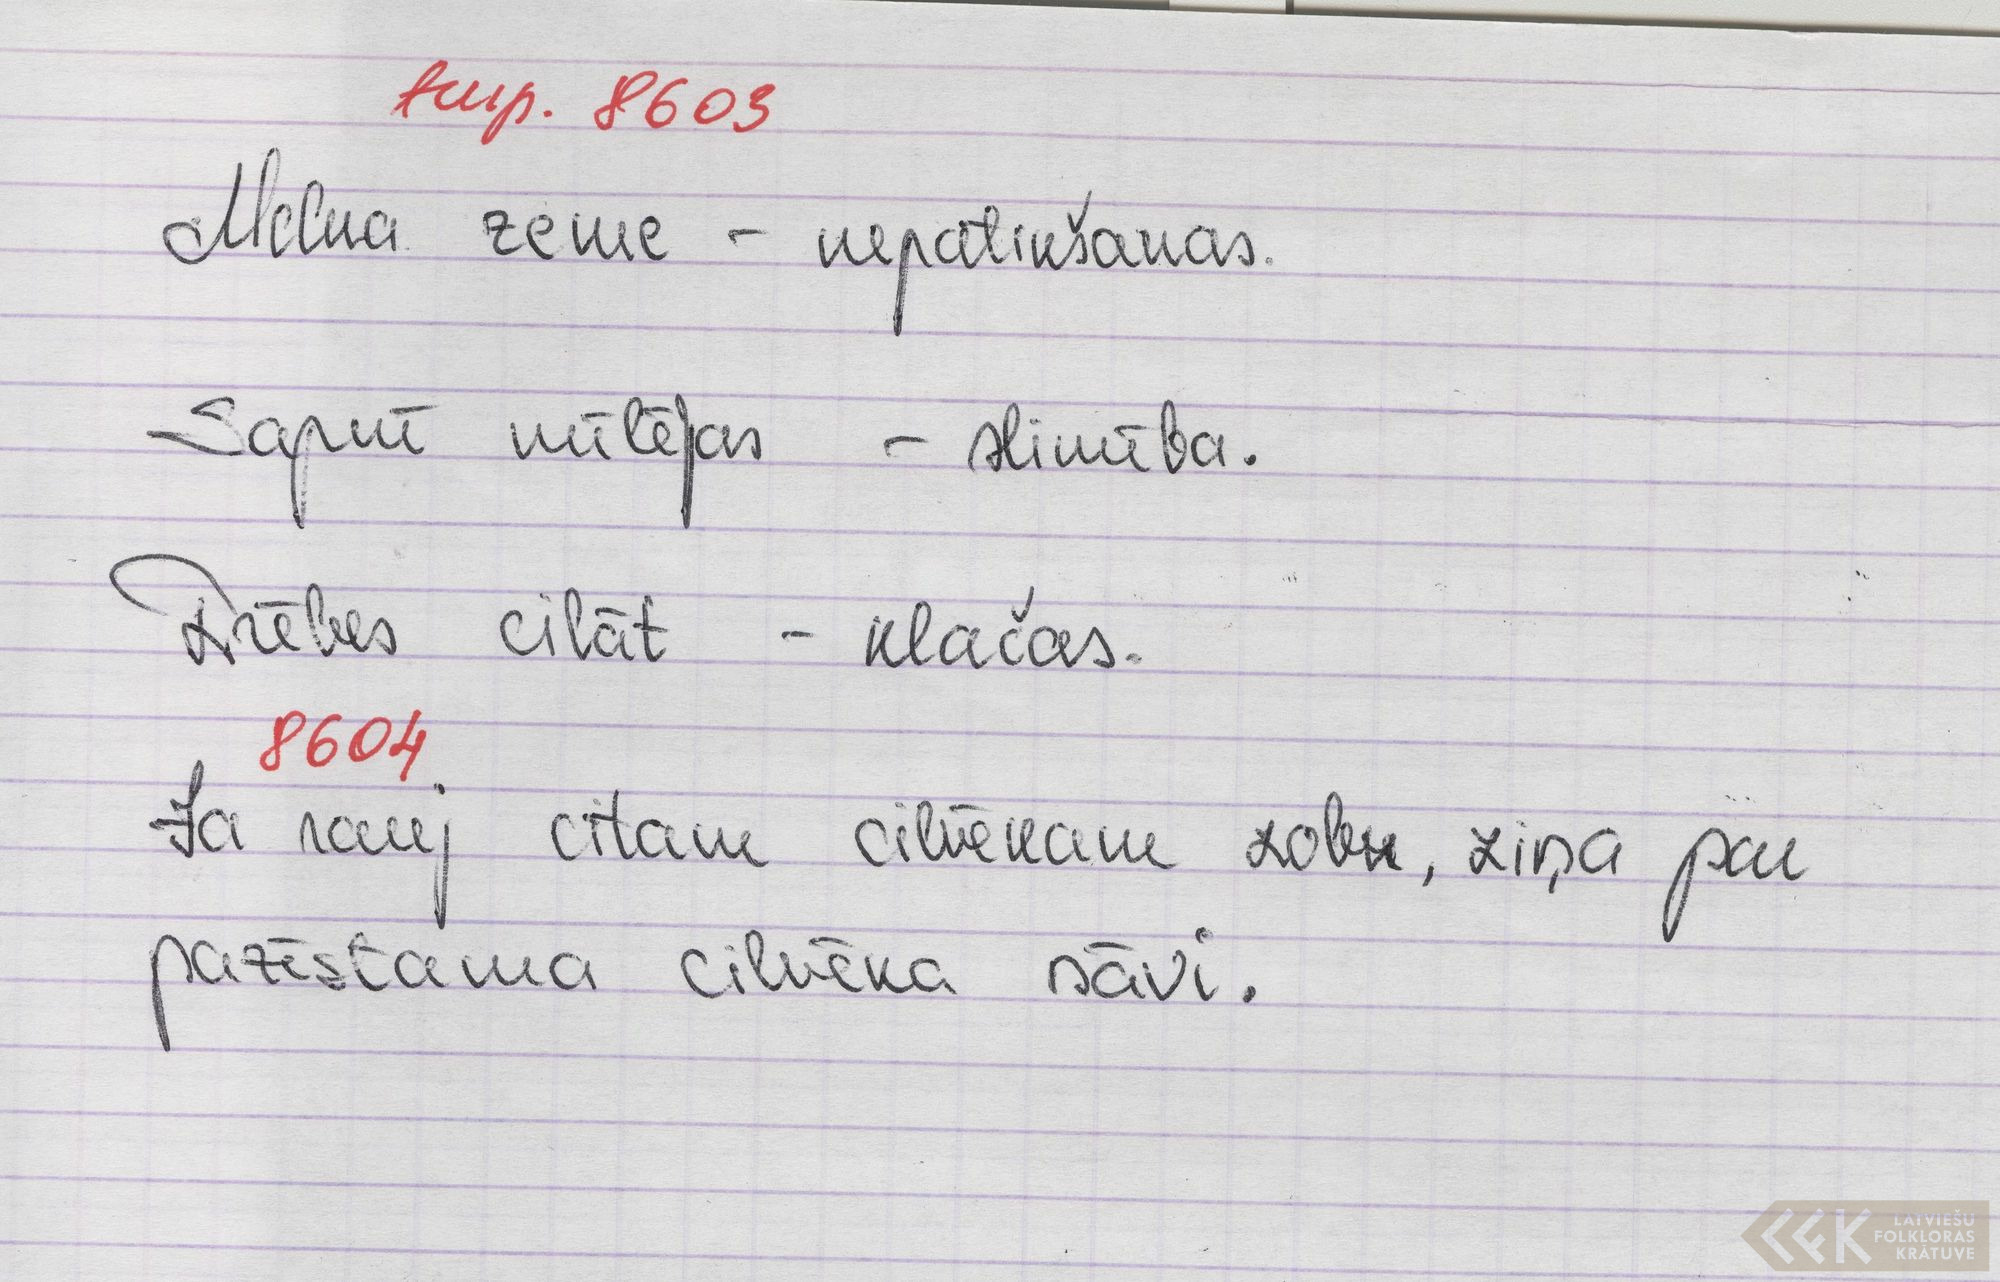 turp. 8603
Melna zeme – nepatikšanas.
Sapnī mīlējas – slimība.
Drēbes cilāt – klačas.
8604
Ja rauj citam cilvēkam zobu, ziņa par
pazīstama cilvēka nāvi.
LATVIEŠU
FOLKLORAS
KRĀTUVE